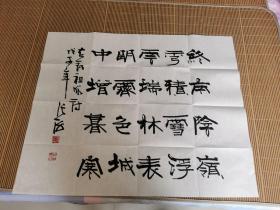 終南陰嶺
秀積雪浮
雲端林表
明霽色城
中增暮寒
祖詠詩
戊子年